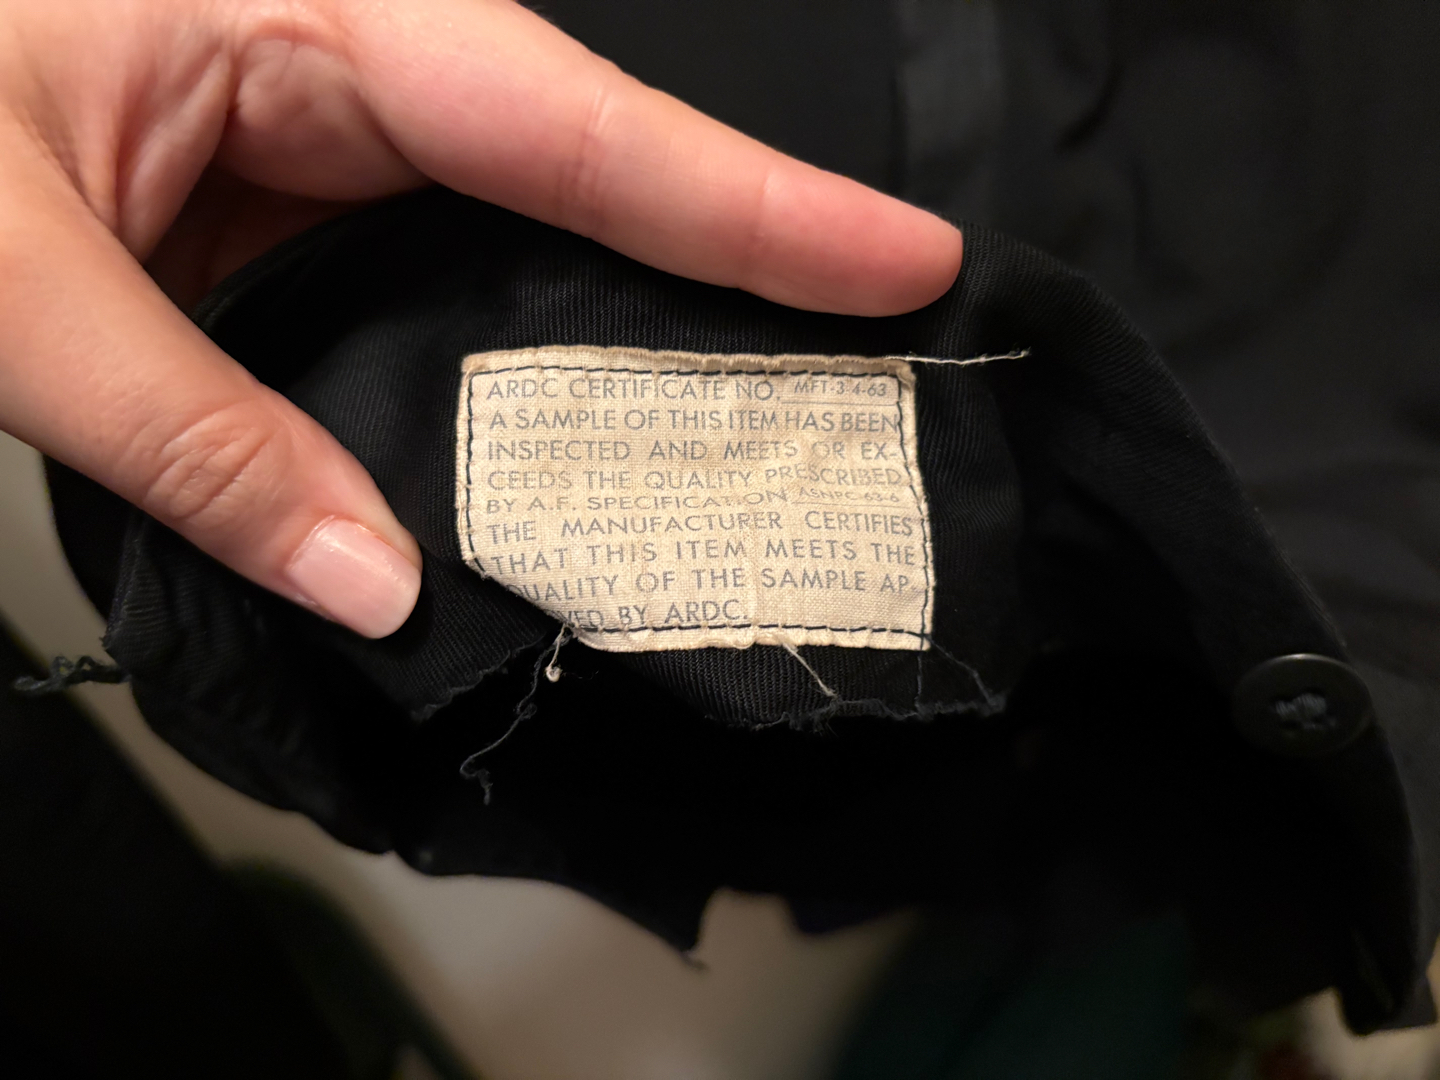 ARDC CERTIFICATE NO. MFT-3-4-63
A SAMPLE OF THIS ITEM HAS BEEN
INSPECTED AND MEETS OR EX-
CEEDS THE QUALITY PRESCRIBED
BY A.F. SPECIFICATION ASNPC-63-6
THE MANUFACTURER CERTIFIES
THAT THIS ITEM MEETS THE
QUALITY OF THE SAMPLE AP-
VED BY ARDC.